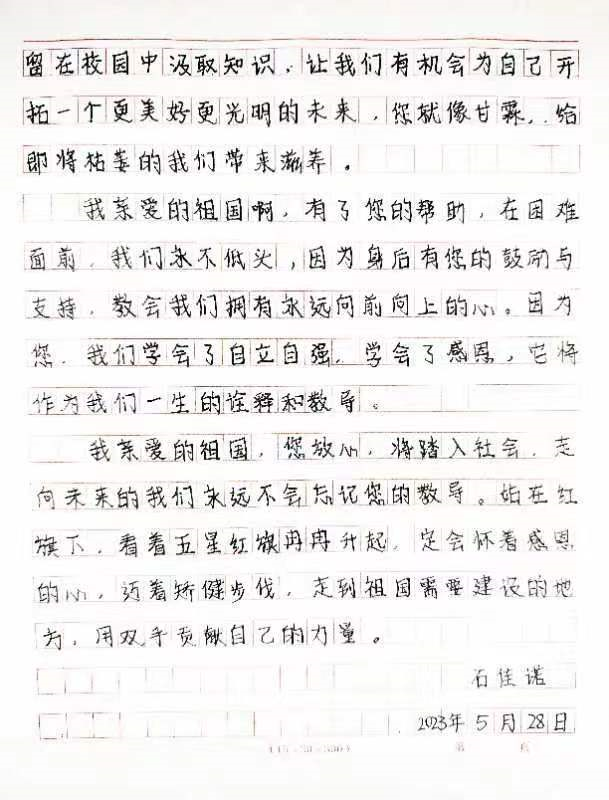 留在校园中汲取知识，让我们有机会为自己开
拓一个更美好更光明的未来，您就像甘霖，给
即将枯萎的我们带来滋养。
我亲爱的祖国啊，有了您的帮助，在困难
面前，我们永不低头，因为身后有您的鼓励与
支持，教会我们拥有永远向前向上的心。因为
您，我们学会了自立自强，学会了感恩，它将
作为我们一生的诠释和教导。
我亲爱的祖国，您放心，将踏入社会，走
向未来的我们永远不会忘记您的教导。站在红
旗下，看着五星红旗冉冉升起，定会怀着感恩
的心，迈着矫健步伐，走到祖国需要建设的地
方，用双手贡献自己的力量。
石佳诺
2023年5月28日
第 页